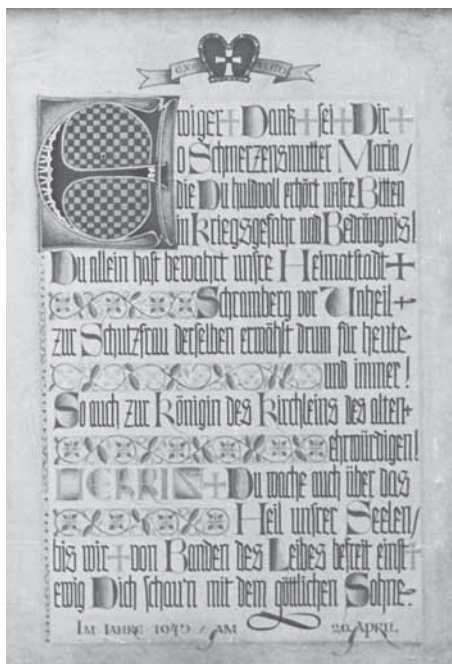 Ewiger + Dank + sei + Dir +
o Schmerzensmutter Maria /
die Du huldvoll erhört unsre Bitten
in Kriegsgefahr und Bedrängnis!
Du allein hast bewahrt unsre Heimatstadt +
Schramberg vor Unheil +
zur Schutzfrau derselben erwählt drum für heute-
und immer!
So auch zur Königin des Kirchleins des alten +
ehrwürdigen!
HERRIN + Du wache auch über das
Heil unsrer Seelen /
bis wir + von Banden des Leibes befreit einst +
ewig Dich schau'n mit dem göttlichen Sohne.
IM JAHRE / AM 20. APRIL